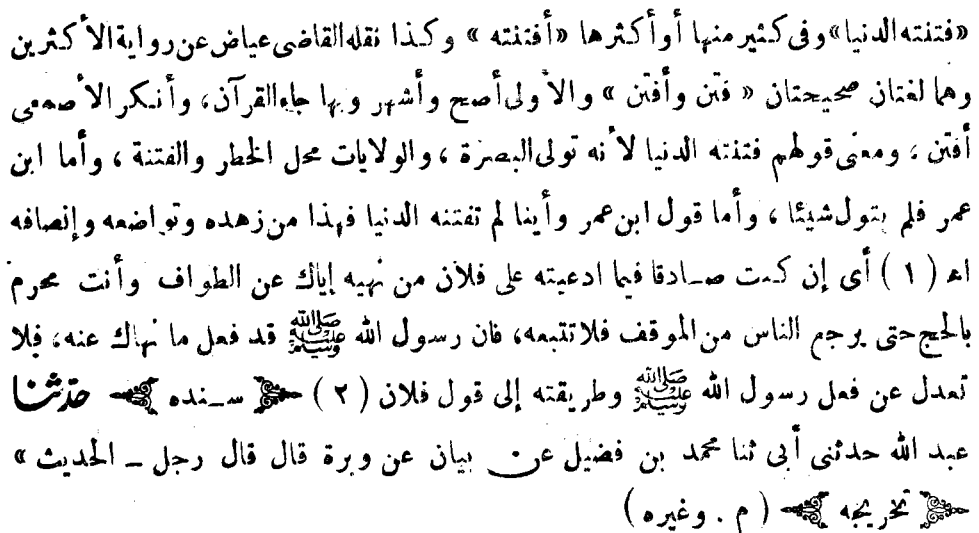 «فتنته الدنيا» وفى كثير منها أو أكثرها «أفتنته» وكذا نقله القاضى عياض عن رواية الأكثرين
وهما لغتان صحيحتان «فتن وأفتن» والأولى أصح وأشهر وبها جاء القرآن، وأنكر الأصمعى
أفتن، ومعنى قولهم فتنته الدنيا لأنه تولى البصرة، والولايات محل الخطر والفتنة، وأما ابن
عمر فلم يتول شيئا، وأما قول ابن عمر وأينا لم تفتنه الدنيا فهذا من زهده وتواضعه وإنصافه
اه (١) أى إن كنت صادقا فيما ادعيته على فلان من نهيه إياك عن الطواف وأنت محرم
بالحج حتى يرجع الناس من الموقف فلا تتبعه، فان رسول الله ﷺ قد فعل ما نهاك عنه، فلا
تعدل عن فعل رسول الله ﷺ وطريقته إلى قول فلان (٢) سنده حدثنا
عبد الله حدثنى أبى ثنا محمد بن فضيل عن بيان عن وبرة قال قال رجل ــ الحديث»
تخريجه (م . وغيره)